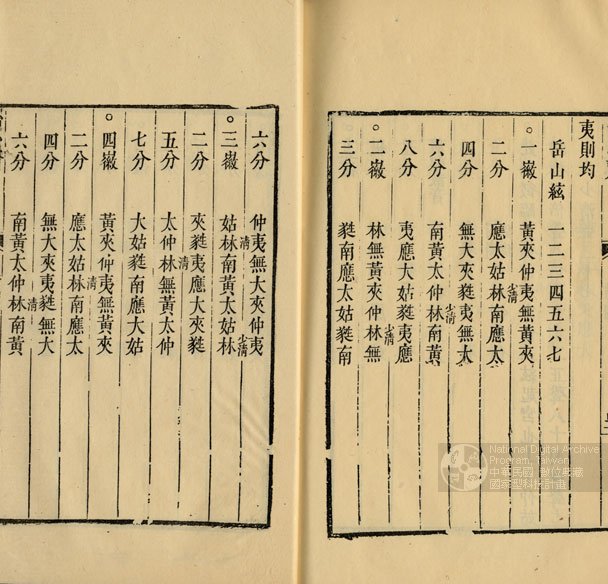 夷則均
岳山絃 一二三四五六七
一徽 黃夾仲夷少清無黃夾
二分 應太姑林南應太
四分 無大夾蕤夷少清無大
六分 南黃太仲林南黃
八分 夷應大姑蕤夷少清應
二徽 林無黃夾仲林無
三分 蕤南應太姑蕤南
六分 仲夷清無大夾仲夷少清
三徽 姑林南黃太姑林
二分 夾蕤夷清應大夾蕤
五分 太仲林無黃太仲
七分 大姑蕤南應大姑
四徽 黃夾仲夷清無黃夾
二分 應太姑林南應太
四分 無大夾蕤夷清無大
六分 南黃太仲林南黃
National Digital Archive
Program, Taiwan
中華民國 數位典藏
國家型科技計畫